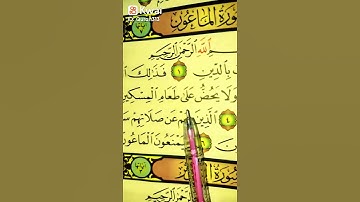 سُورَةُ الْمَاعُونِ
اللَّهِ الرَّحْمَٰنِ الرَّحِيمِ
بِالدِّينِ ١ فَذَٰلِكَ
وَلَا يَحُضُّ عَلَىٰ طَعَامِ الْمِسْكِينِ
٤ الَّذِينَ هُمْ عَن صَلَاتِهِمْ
يَمْنَعُونَ الْمَاعُونَ
سُورَةُ
الرَّحْمَٰنِ الرَّحِيمِ